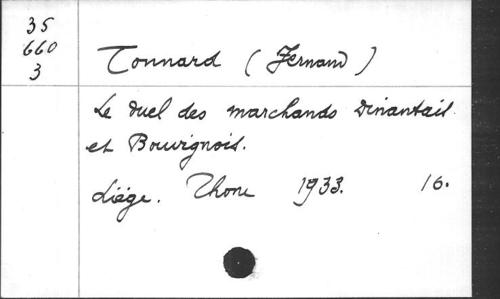 35
660
3
Tonnard (Fernand)
Le duel des marchands Dinantais
et Bouvignois.
Liége. Thone 1933. 16.